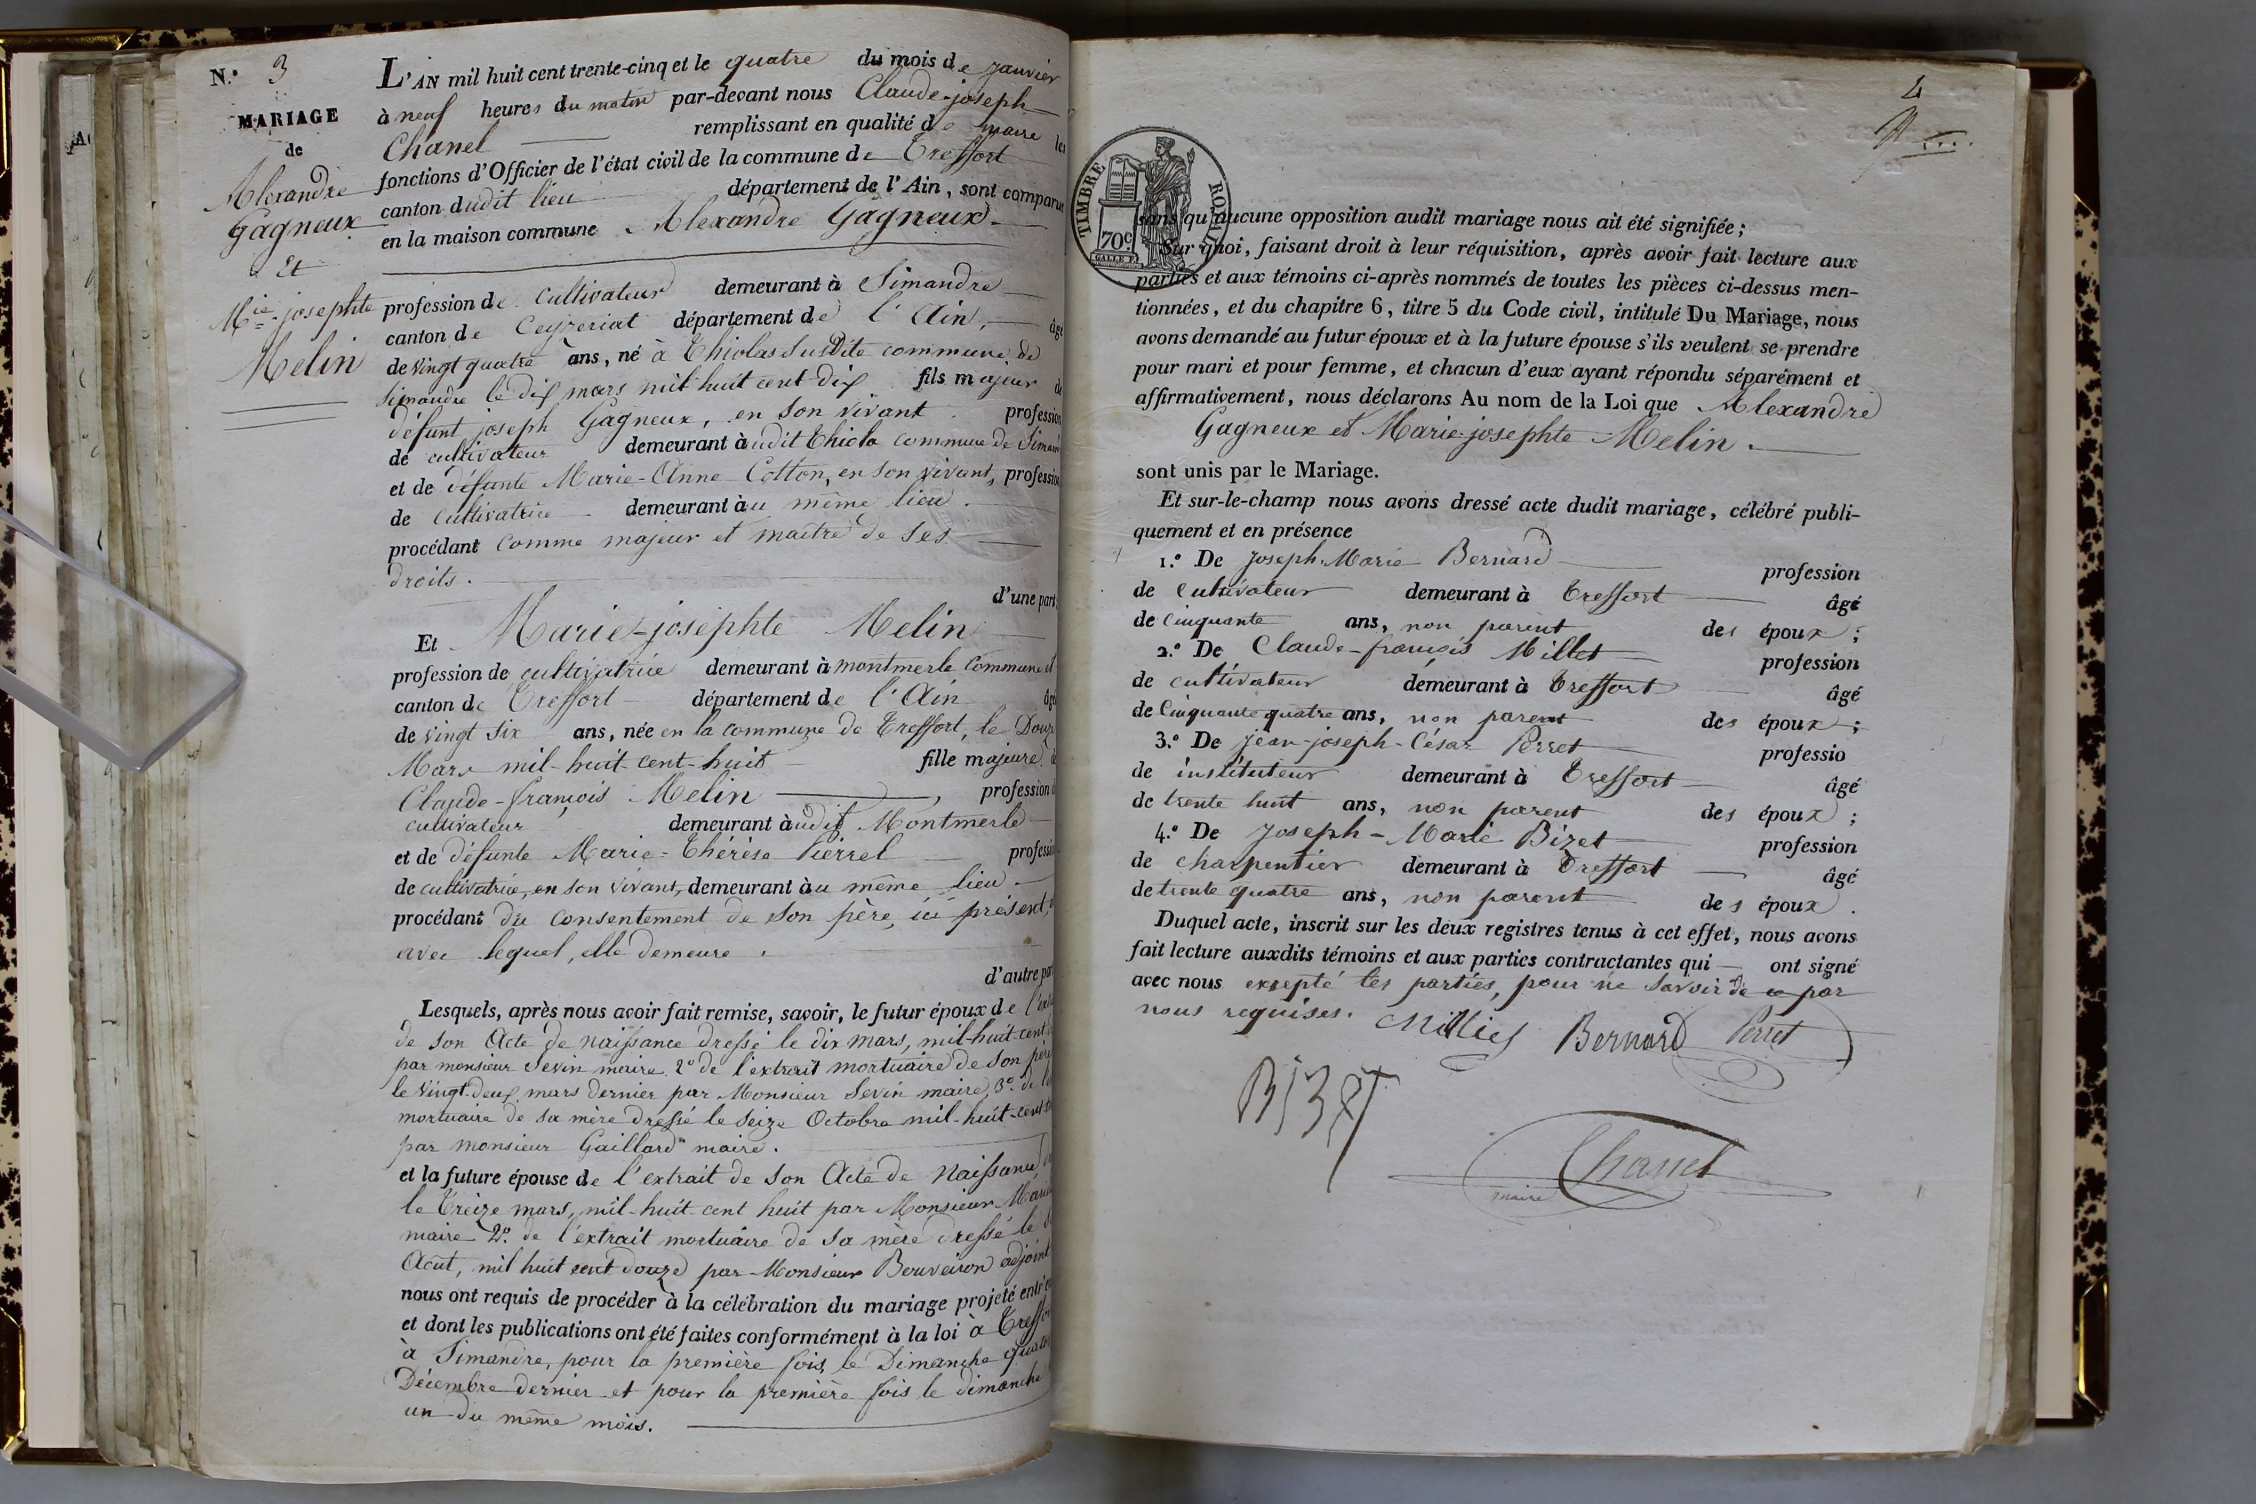 N.° 3
MARIAGE
de
Alexandre
Gagneux
Et
M.ie josephte
Melin
L'AN mil huit cent trente-cinq et le quatre du mois de janvier
à neuf heures du matin par-devant nous Claude-joseph
Chanel remplissant en qualité de maire les
fonctions d'Officier de l'état civil de la commune de Treffort
canton dudit lieu département de l'Ain, sont comparus
en la maison commune Alexandre Gagneux
profession de cultivateur demeurant à Simandre
canton de Ceyzeriat département de l'Ain, âgé
de vingt quatre ans, né à Thiolas susdite commune de
Simandre le dix mars mil huit cent dix fils majeur de
défunt joseph Gagneux, en son vivant profession
de cultivateur demeurant àudit Thiola commune de Simand
et de défunte Marie-Anne Cotton, en son vivant, profession
de cultivatrice demeurant àu même lieu.
procédant comme majeur et maître de ses
droits.
d'une part,
Et Marie-josephte Melin
profession de cultivatrice demeurant à montmerle commune et
canton de Treffort département de l'Ain âgé
de vingt six ans, née en la commune de Treffort, le Douze
Mars mil-huit-cent-huit fille majeure de
Claude-françois Melin, profession de
cultivateur demeurant àudit Montmerle
et de défunte Marie-Thérèse Pierrel profession
de cultivatrice, en son vivant, demeurant àu même lieu
procédant du consentement de son père, ici présent,
avec lequel, elle demeure.
d'autre par
Lesquels, après nous avoir fait remise, savoir, le futur époux de l'
de son Acte de naissance dressé le dix mars, mil-huit-cent
par monsieur Sevin maire 2° de l'extrait mortuaire de son père
le vingt-deux mars dernier par Monsieur Sevin maire, 3° de
mortuaire de sa mère dressé le seize Octobre mil-huit-cent
par monsieur Gaillard maire.
et la future épouse de l'extrait de son Acte de Naissance
le Treize mars, mil-huit-cent huit par Monsieur
maire 2° de l'extrait mortuaire de sa mère dressé le
Aout, mil huit cent douze par Monsieur Bouveiron adjoint
nous ont requis de procéder à la célébration du mariage projeté entr'eux
et dont les publications ont été faites conformément à la loi à Treffort
à Simandre, pour la première fois, le Dimanche
Décembre dernier et pour la première fois le dimanche
un du même mois.
4
TIMBRE ROYAL
70c.
sans qu'aucune opposition audit mariage nous ait été signifiée;
Sur quoi, faisant droit à leur réquisition, après avoir fait lecture aux
parties et aux témoins ci-après nommés de toutes les pièces ci-dessus men-
tionnées, et du chapitre 6, titre 5 du Code civil, intitulé Du Mariage, nous
avons demandé au futur époux et à la future épouse s'ils veulent se prendre
pour mari et pour femme, et chacun d'eux ayant répondu séparément et
affirmativement, nous déclarons Au nom de la Loi que Alexandre
Gagneux et Marie-josephte Melin.
sont unis par le Mariage.
Et sur-le-champ nous avons dressé acte dudit mariage, célébré publi-
quement et en présence
1.° De Joseph-Marie Bernard profession
de cultivateur demeurant à Treffort âgé
de Cinquante ans, non parent des époux;
2.° De Claude-françois Millet profession
de cultivateur demeurant à Treffort âgé
de Cinquante quatre ans, non parent des époux;
3.° De jean-joseph-César Perret professio
de instituteur demeurant à Treffort âgé
de trente huit ans, non parent des époux;
4.° De Joseph-Marie Bizet profession
de charpentier demeurant à Treffort âgé
de trente quatre ans, non parent des époux.
Duquel acte, inscrit sur les deux registres tenus à cet effet, nous avons
fait lecture auxdits témoins et aux parties contractantes qui ont signé
avec nous excepté les parties, pour ne savoir de ce par
nous requises.
Bernard Perret
Chanel
maire